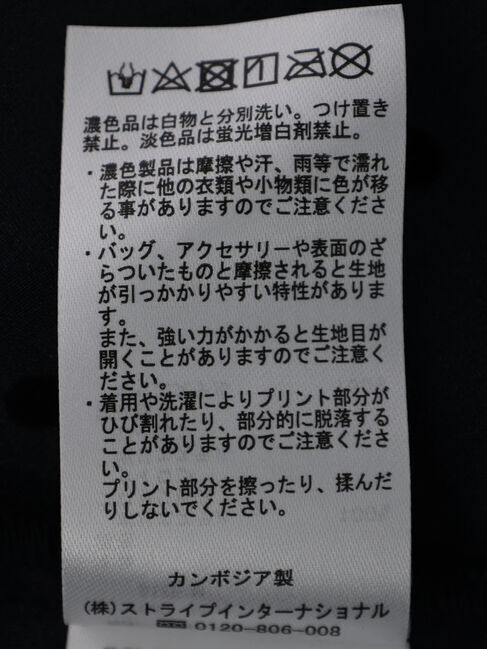 濃色品は白物と分別洗い。つけ置き
禁止。淡色品は蛍光増白剤禁止。
・濃色製品は摩擦や汗、雨等で濡れ
た際に他の衣類や小物類に色が移
る事がありますのでご注意くださ
い。
・バッグ、アクセサリーや表面のざ
らついたものと摩擦されると生地
が引っかかりやすい特性がありま
す。
また、強い力がかかると生地目が
開くことがありますのでご注意く
ださい。
・着用や洗濯によりプリント部分が
ひび割れたり、部分的に脱落する
ことがありますのでご注意くださ
い。
プリント部分を擦ったり、揉んだ
りしないでください。
カンボジア製
(株)ストライプインターナショナル
0120-806-008